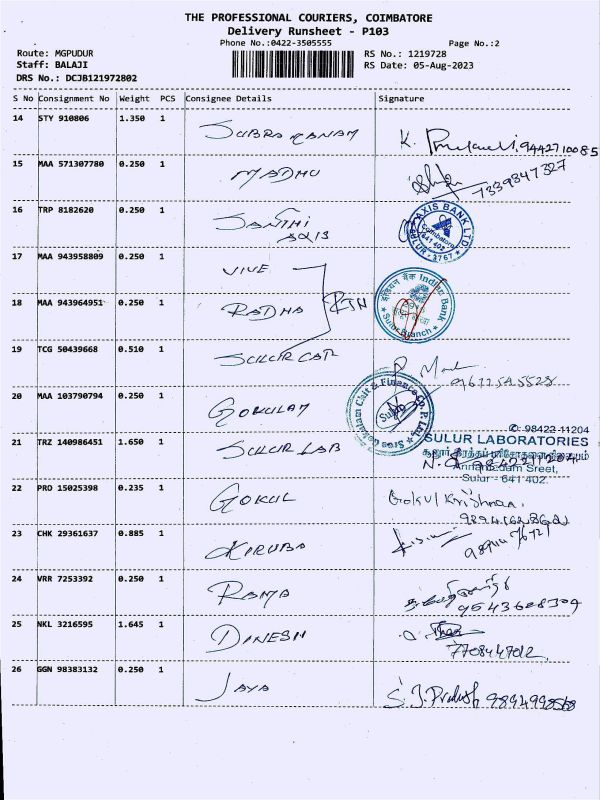 THE PROFESSIONAL COURIERS, COIMBATORE
Delivery Runsheet - P103
Phone No.:0422-3505555
Page No.:2
Route: MGPUDUR
RS No.: 1219728
Staff: BALAJI
RS Date: 05-Aug-2023
DRS No.: DCJB121972802
S No Consignment No Weight PCS Consignee Details Signature
14 STY 910806 1.350 1 SUBRAMANAM K. 9442710085
15 MAA 571307780 0.250 1 MADHU 7339347327
16 TRP 8182620 0.250 1 SANTHI
AXIS BANK LTD.
Coimbatore
641 402
SULUR - 3767
17 MAA 943958809 0.250 1 VIVE
18 MAA 943964951 0.250 1 RADHA RTN
इंडियन बैंक Indian Bank
Sulur Branch
19 TCG 50439668 0.510 1 SULUR
20 MAA 103790794 0.250 1 GOKULAM
Sree Gokulam Chit & Finance Co. P. Ltd.
Sulur
21 TRZ 140986451 1.650 1 SULUR LAB
✆: 98422 11204
SULUR LABORATORIES
சூலூர் இரத்தப் பரிசோதனை நிலையம்
Sulur - 641 402.
22 PRO 15025398 0.235 1 GOKUL Gokul Krishnan.
23 CHK 29361637 0.885 1 KIRUBA
24 VRR 7253392 0.250 1 RAMA
9543608309
25 NKL 3216595 1.645 1 DINESH
7708447012
26 GGN 98383132 0.250 1 JAYA S. J. Prakash 9894998568